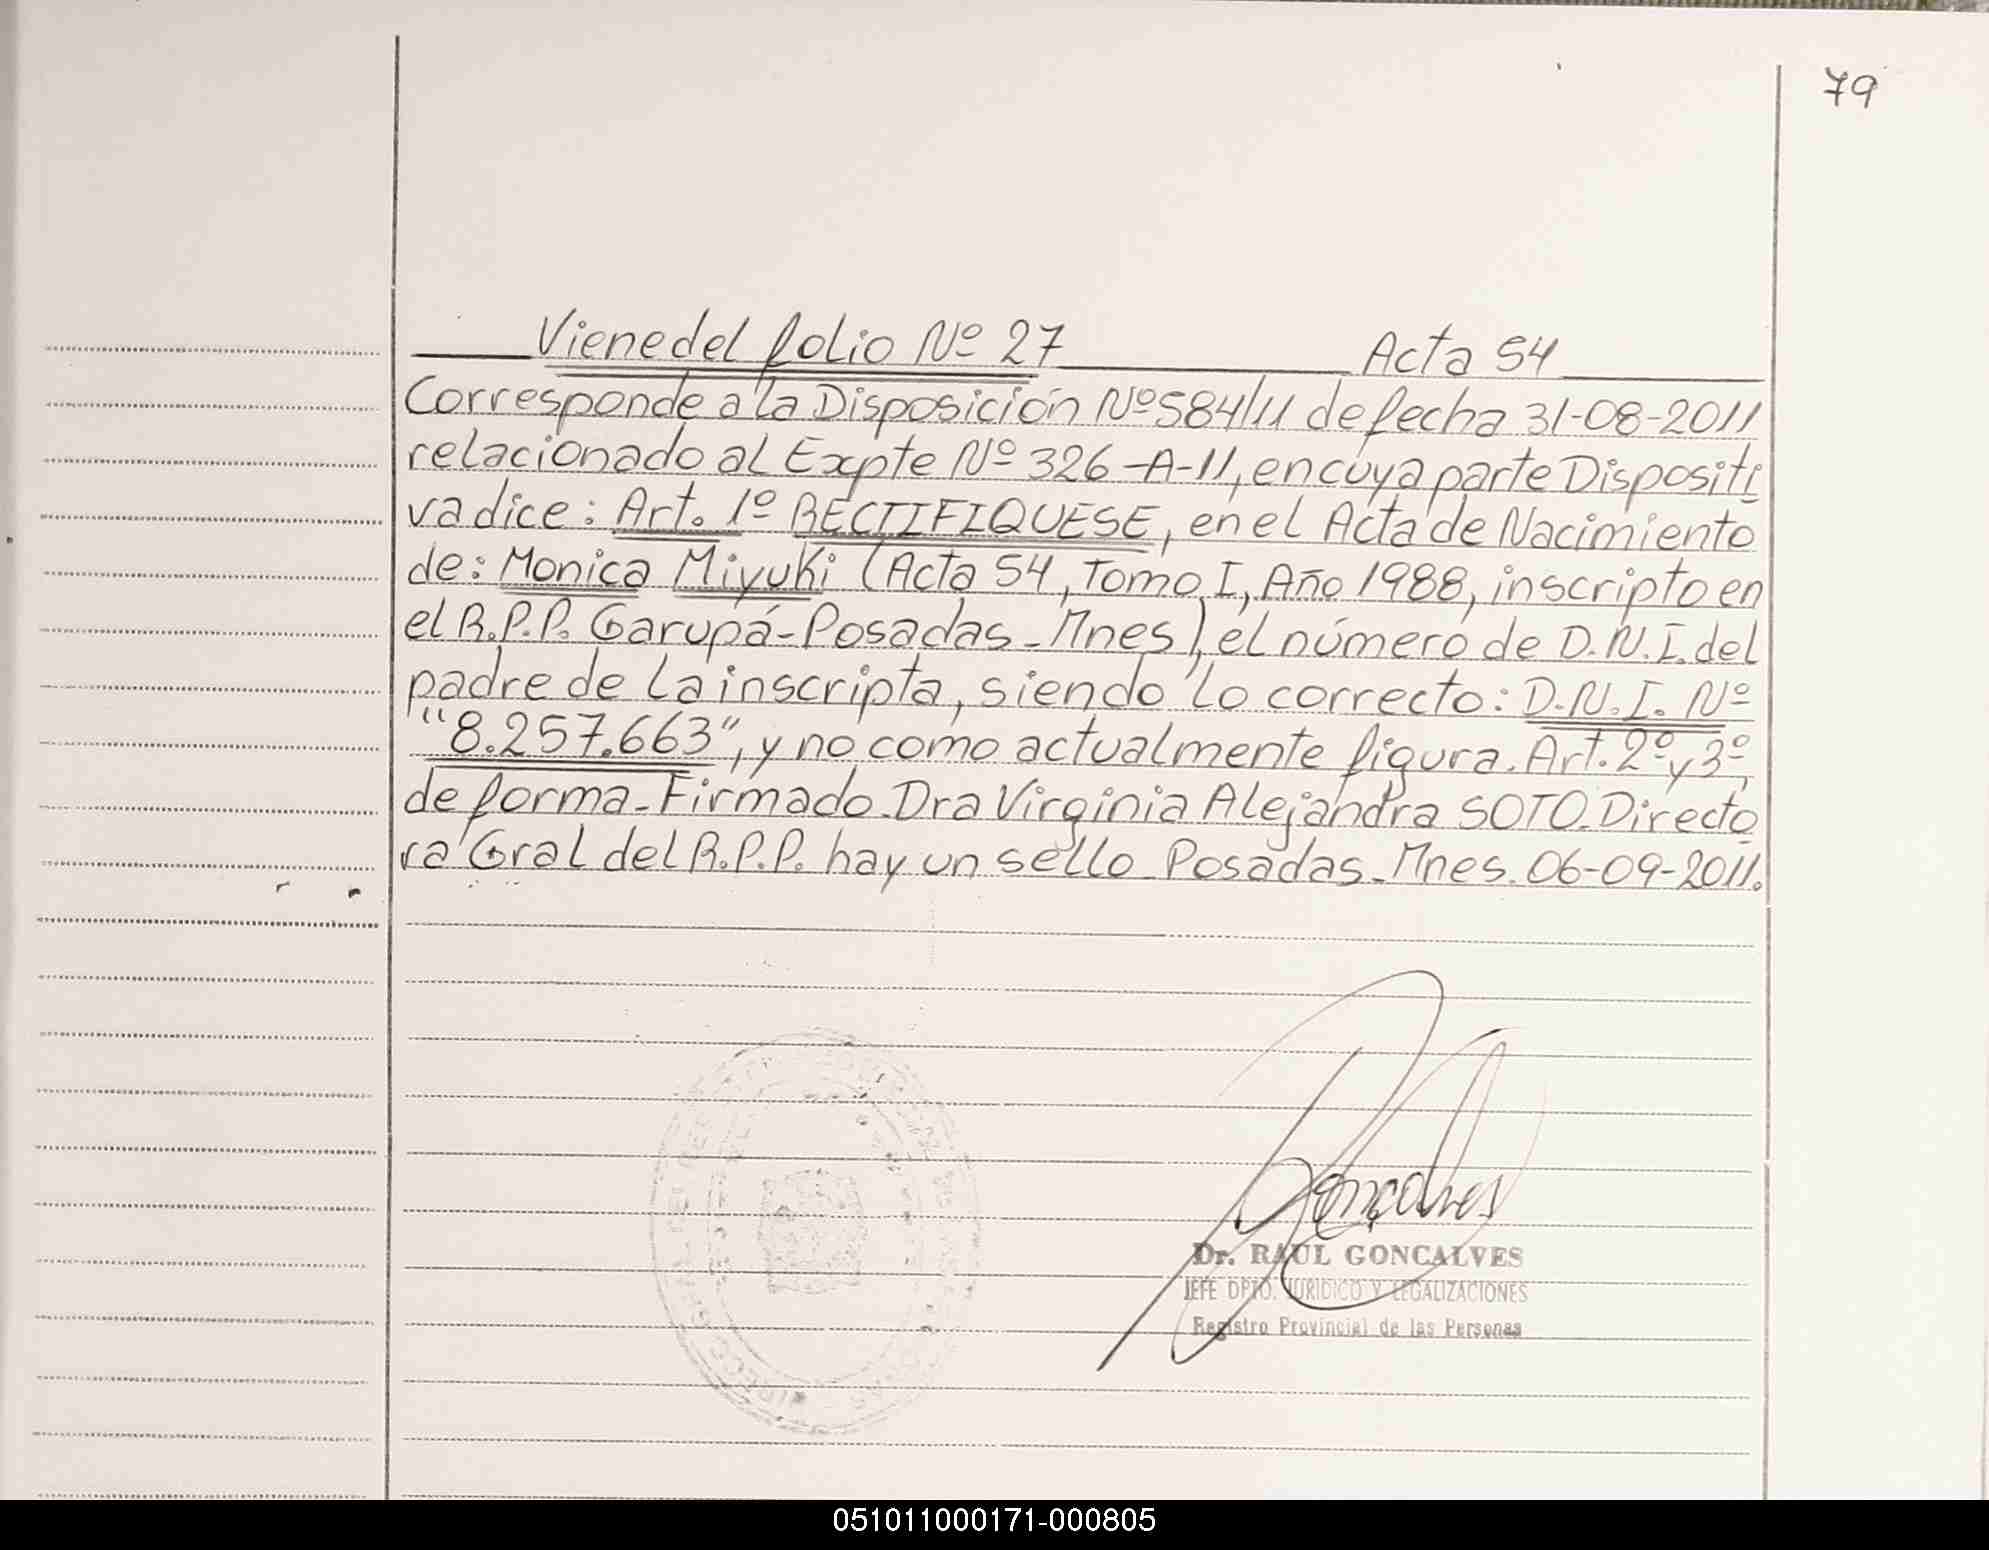 79
Viene del folio Nº 27 Acta 54
Corresponde a la Disposición Nº 584/11 de fecha 31-08-2011
relacionado al Expte Nº 326-A-11, en cuya parte Dispositi
va dice: Art. 1º RECTIFIQUESE, en el Acta de Nacimiento
de: Monica Miyuki (Acta 54, Tomo I, Año 1988, inscripto en
el R.P.P. Garupá-Posadas-Mnes), el número de D.N.I. del
padre de la inscripta, siendo lo correcto: D.N.I. Nº
"8.257.663", y no como actualmente figura. Art. 2º y 3º,
de forma-Firmado. Dra Virginia Alejandra SOTO. Directo
ra Gral del R.P.P. hay un sello-Posadas-Mnes. 06-09-2011.
Gonçalves
Dr. RAUL GONCALVES
JEFE DPTO. JURIDICO Y LEGALIZACIONES
Registro Provincial de las Personas
051011000171-000805